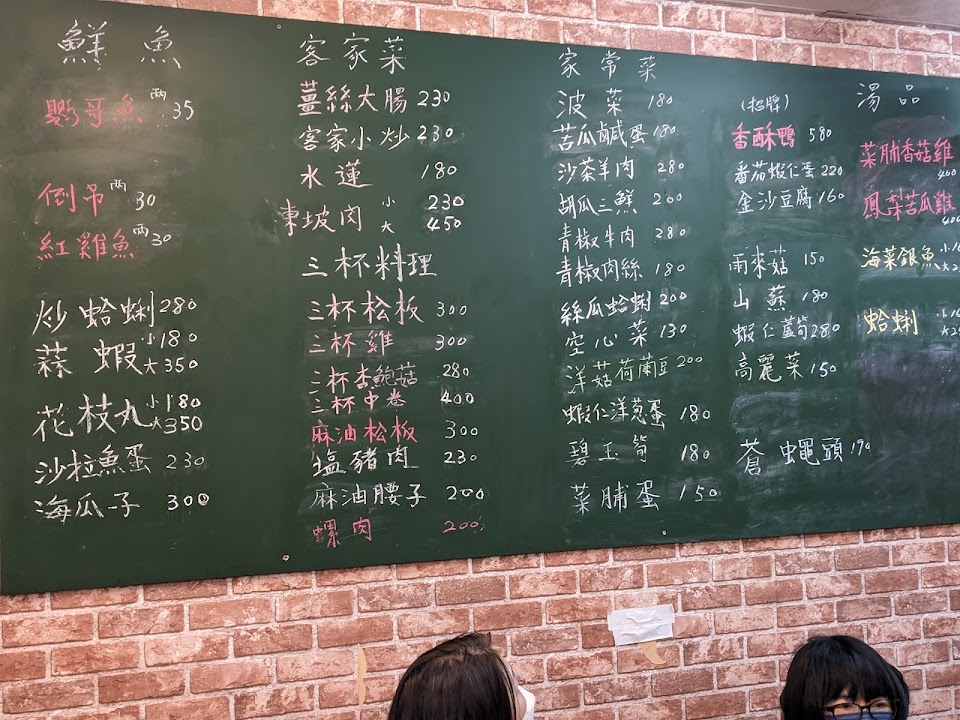 鮮魚
鸚哥魚 兩 35
倒吊 兩 30
紅雞魚 兩 30
炒蛤蜊 280
蒜蝦 小180
大350
花枝丸 小180
大350
沙拉魚蛋 230
海瓜子 300
客家菜
薑絲大腸 230
客家小炒 230
水蓮 180
東坡肉 小 230
大 450
三杯料理
三杯松板 300
三杯雞 300
三杯杏鮑菇 280
三杯中卷 400
麻油松板 300
塩豬肉 230
麻油腰子 200
螺肉 200
家常菜
波菜 180
苦瓜鹹蛋 180
沙茶羊肉 280
胡瓜三鮮 200
青椒牛肉 280
青椒肉絲 180
絲瓜蛤蜊 200
空心菜 130
洋菇荷蘭豆 200
蝦仁洋蔥蛋 180
碧玉筍 180
菜脯蛋 150
(招牌)
香酥鴨 580
番茄蝦仁蛋 220
金沙豆腐 160
雨來菇 150
山蘇 180
蝦仁蘆筍 280
高麗菜 150
蒼蠅頭 190
湯品
菜脯香菇雞
400
鳳梨苦瓜雞
400
海菜銀魚
蛤蜊